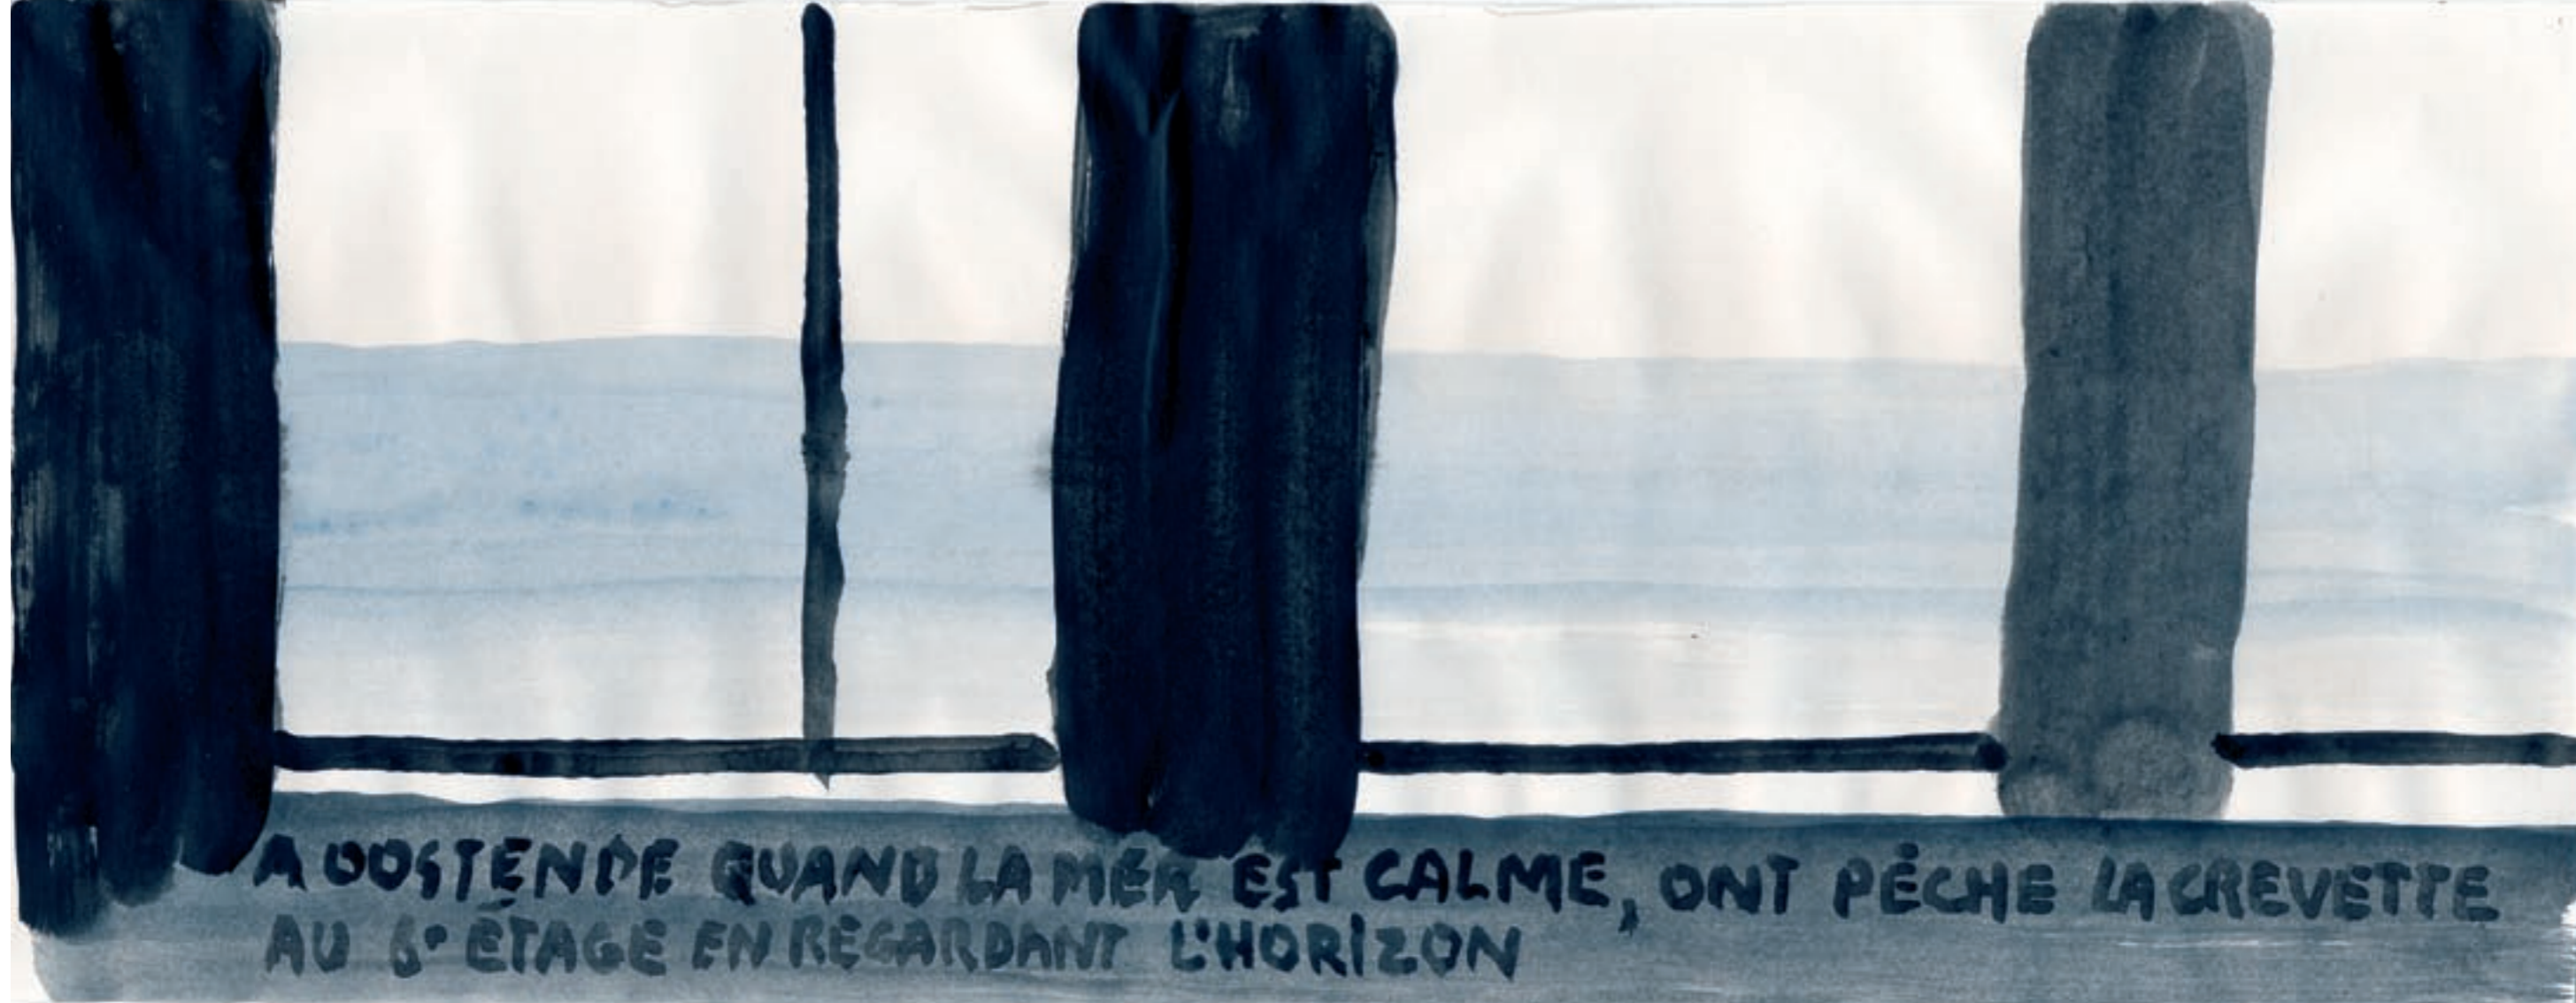 A OOSTENDE QUAND LA MER EST CALME, ONT PÉCHE LA CREVETTE
AU 6° ÉTAGE EN REGARDANT L'HORIZON